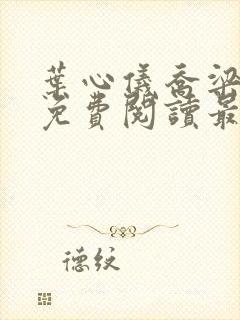 葉心儀喬梁
免費閱讀最
德纹